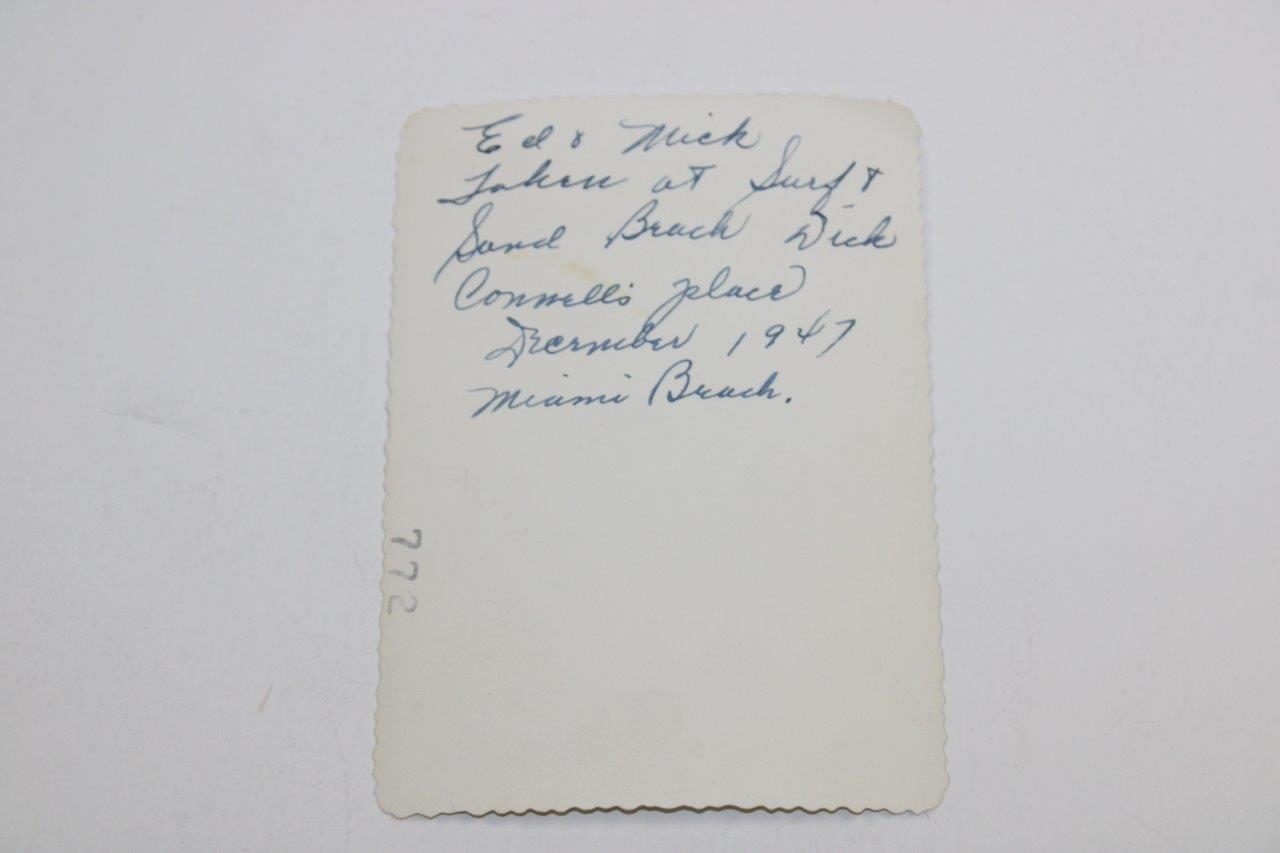 Ed & Mick
Taken at Surf &
Sand Beach Dick
Connell's place
December 1947
Miami Beach.
772